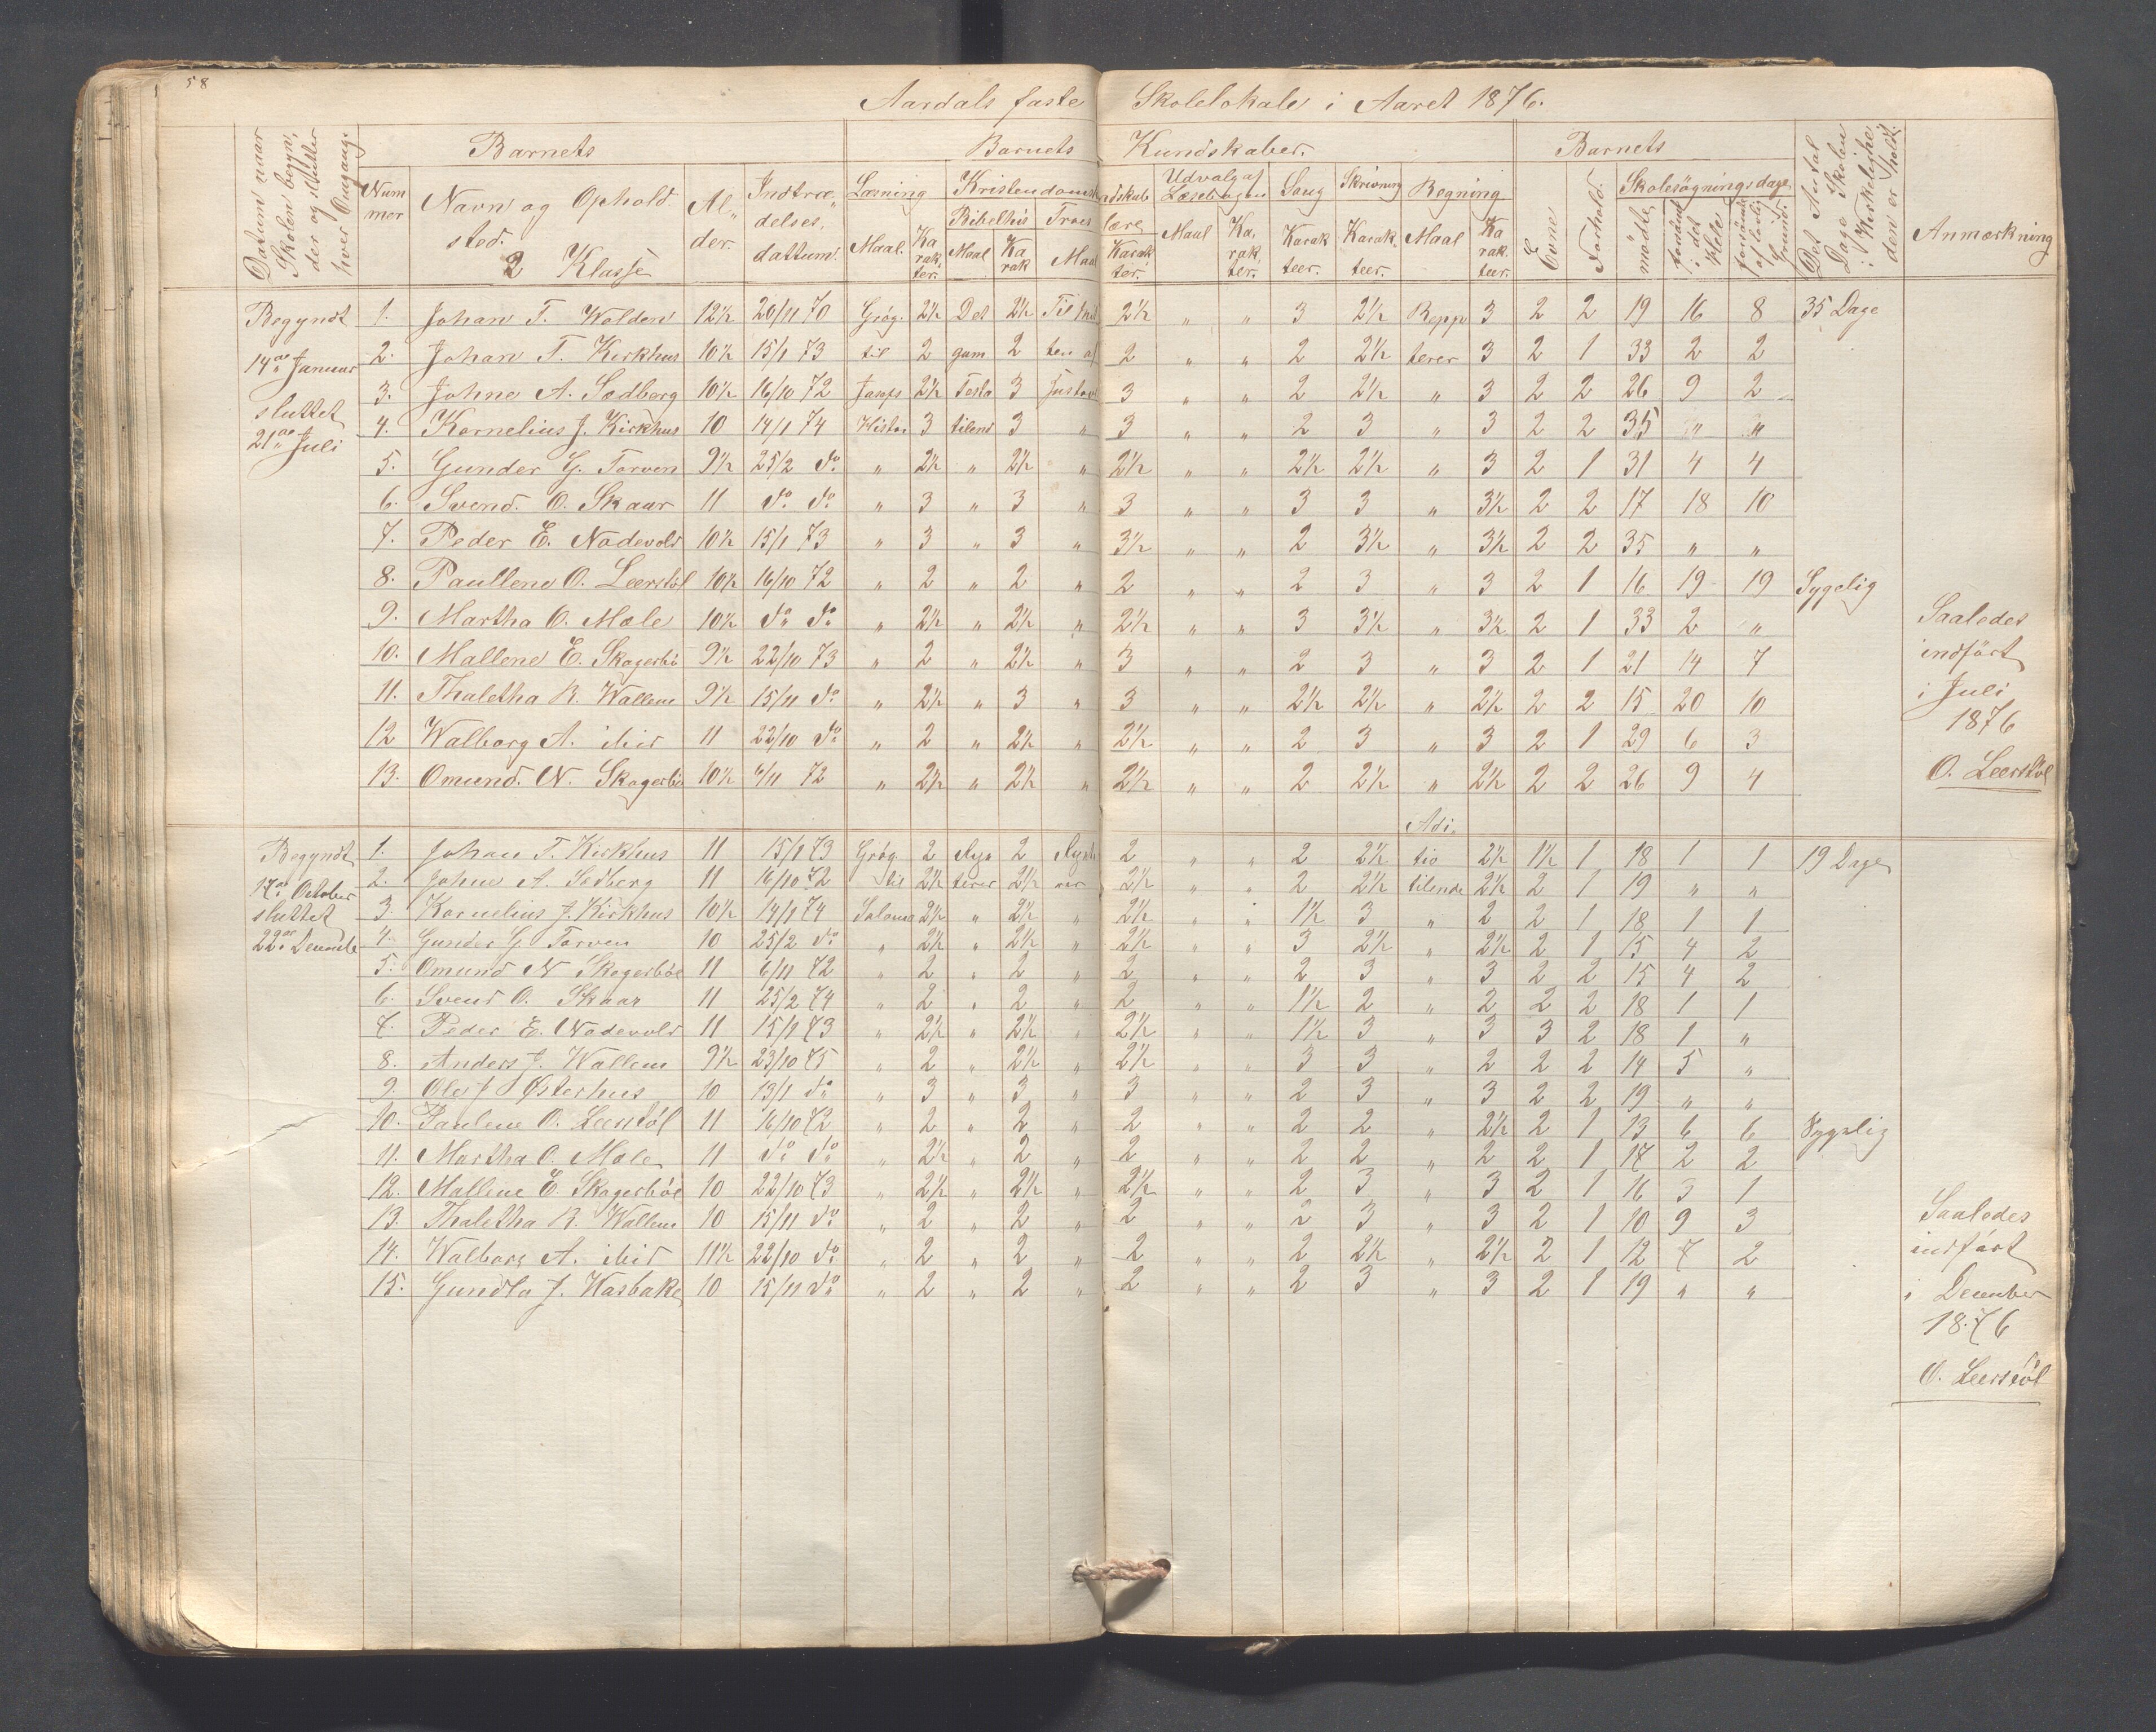 58
Aardals faste Skolelokale i Aaret 1876.
Datum naar Skolen begyn, der og slutter hver Omgang.
Barnets
Barnets Kundskaber.
Barnets
Det Antal Dage Skolen i Kirkeligheden er holdt.
Anmærkning
Num mer
Navn og Ophold sted.
2 Klasse
Al„ der.
Indtræ„ delses, dattum.
Læsning
Maal.
Ka rak ter.
Kristendomskundskab
Bibelhis
Maal
Ka rak
Troes lære
Maal
Karak ter.
Udvalg af Læsebogen
Maal
Ka, rak, ter.
Sang
Karak teer.
Skrivning
Karak, teer.
Regning
Maal
Ka rak. teer.
Evne
Forhold.
Skolesögningsdage
mödte
forsömt i det Hele
forsömt af lovlig Grund.
Begyndt 1. Johan T. Wolden 12½ 20/11 70 Grög. 2½ Det 2½ Til 2½ „ „ 3 2½ Reppe 3 2 2 19 16 8 35 Dage
14de Januar 2. Johan T. Kirkhus 10½ 15/1 73 til 2 gam 2 ten af 2 „ „ 2 2½ terer 3 2 1 33 2 2
sluttet 3. Johne A. Sedberg 10½ 16/10 72 Josefs 2½ Testa 3 3 „ „ 2 2½ „ 3 2 2 26 9 2
21de Juli 4. Kornelius J. Kirkhus 10 14/1 74 Histor 3 tilend 3 „ 3 „ „ 2 3 „ 3 2 2 35 „ „
5. Gunder G. Torven 9½ 25/2 do „ 2½ „ 2½ „ 2½ „ „ 2½ 2½ „ 3 2 1 31 4 4
6. Svend. O. Skaar 11 do do „ 3 „ 3 „ 3 „ „ 3 3 „ 3½ 2 2 17 18 10
7. Peder E. Nodevold 10½ 15/1 73 „ 3 „ 3 „ 3½ „ „ 2 3½ „ 3½ 2 2 35 „ „
8. Paullene O. Leerstöl 10½ 16/10 72 „ 2 „ 2 „ 2 „ „ 2 3 „ 3 2 1 16 19 19 Sygelig
9. Martha O. Mæle 10½ do do „ 2½ „ 2½ „ 2½ „ „ 3 3½ „ 3½ 2 1 33 2 „
10. Mallene E. Skogerbö 9½ 22/10 73 „ 2 „ 2½ „ 3 „ „ 2 3 „ 3 2 1 21 14 7
11. Thaletha R. Wallem 9½ 15/11 do „ 2½ „ 3 „ 3 „ „ 2½ 2½ „ 2½ 2 2 15 20 10
12 Walborg A. ibid 11 22/10 do „ 2 „ 2½ „ 2½ „ „ 2 3 „ 3 2 1 29 6 3
13. Omund. N. Skogerbö 10½ 6/11 72 „ 2½ „ 2½ „ 2½ „ „ 2 2½ „ 2½ 2 2 26 9 4
Saaledes
indfört
i Juli
1876
O. Leerstöl
Adi„
Begyndt 1. Johan T. Kirkhus 11 15/1 73 Grög. 2 Nye 2 2 „ „ 2 2½ tio 2½ 1½ 1 18 1 1 19 Dage
17de October 2. Johne A. Sedberg 11 16/10 72 til 2½ terer 2½ 2½ „ „ 2 2½ tilende 2½ 2 1 19 „ „
sluttet 3. Kornelius J. Kirkhus 10½ 14/1 74 Saloma 2½ „ 2½ „ 2½ „ „ 1½ 3 „ 2 2 1 18 1 1
22de Decembe 4. Gunder G. Torven 10 25/2 do „ 2½ „ 2½ „ 2½ „ „ 3 2½ „ 2½ 2 1 15 4 2
5. Omund N Skogerböe 11 6/11 72 „ 2 „ 2 „ 2 „ „ 2 3 „ 3 2 2 15 4 2
6. Svend O. Skaar 11 25/2 74 „ 2 „ 2 „ 2 „ „ 1½ 2 „ 2 2 2 18 1 1
7. Peder E. Nodevold 11 15/1 73 „ 2½ „ 2½ „ 2½ „ „ 1½ 3 „ 3 3 2 18 1 „
8. Anders J. Wallem 9½ 23/10 75 „ 2 „ 2½ „ 2½ „ „ 3 3 „ 2 2 2 14 5 „
9. Ole J Østerhus 10 13/1 do „ 3 „ 3 „ 3 „ „ 2 3 „ 3 2 2 19 „ „
10. Paulene O. Leerstöl 11 16/10 72 „ 2 „ 2 „ 2 „ „ 2 2 „ 2½ 2 1 13 6 6 Sygelig
11. Martha O. Mæle 11 do do „ 2½ „ 2 „ 2 „ „ 2 2 „ 2 2 1 17 2 2
12. Mallene E. Skogerböe 10 22/10 73 „ 2½ „ 2½ „ 2½ „ „ 2 3 „ 3 2 1 16 3 1
13. Thaletha R. Wallem 10 15/11 do „ 2 „ 2 „ 2 „ „ 2 3 „ 3 2 1 10 9 3
14. Walborg A. ibid 11½ 22/10 do „ 2 „ 2 „ 2 „ „ 2 2½ „ 2½ 2 1 12 7 2
15. Gundla J. Hasbakke 10 15/11 do „ 2 „ 2 „ 2 „ „ 2 3 „ 3 2 1 19 „ „
Saaledes
indfört
i December
1876
O. Leerstöl